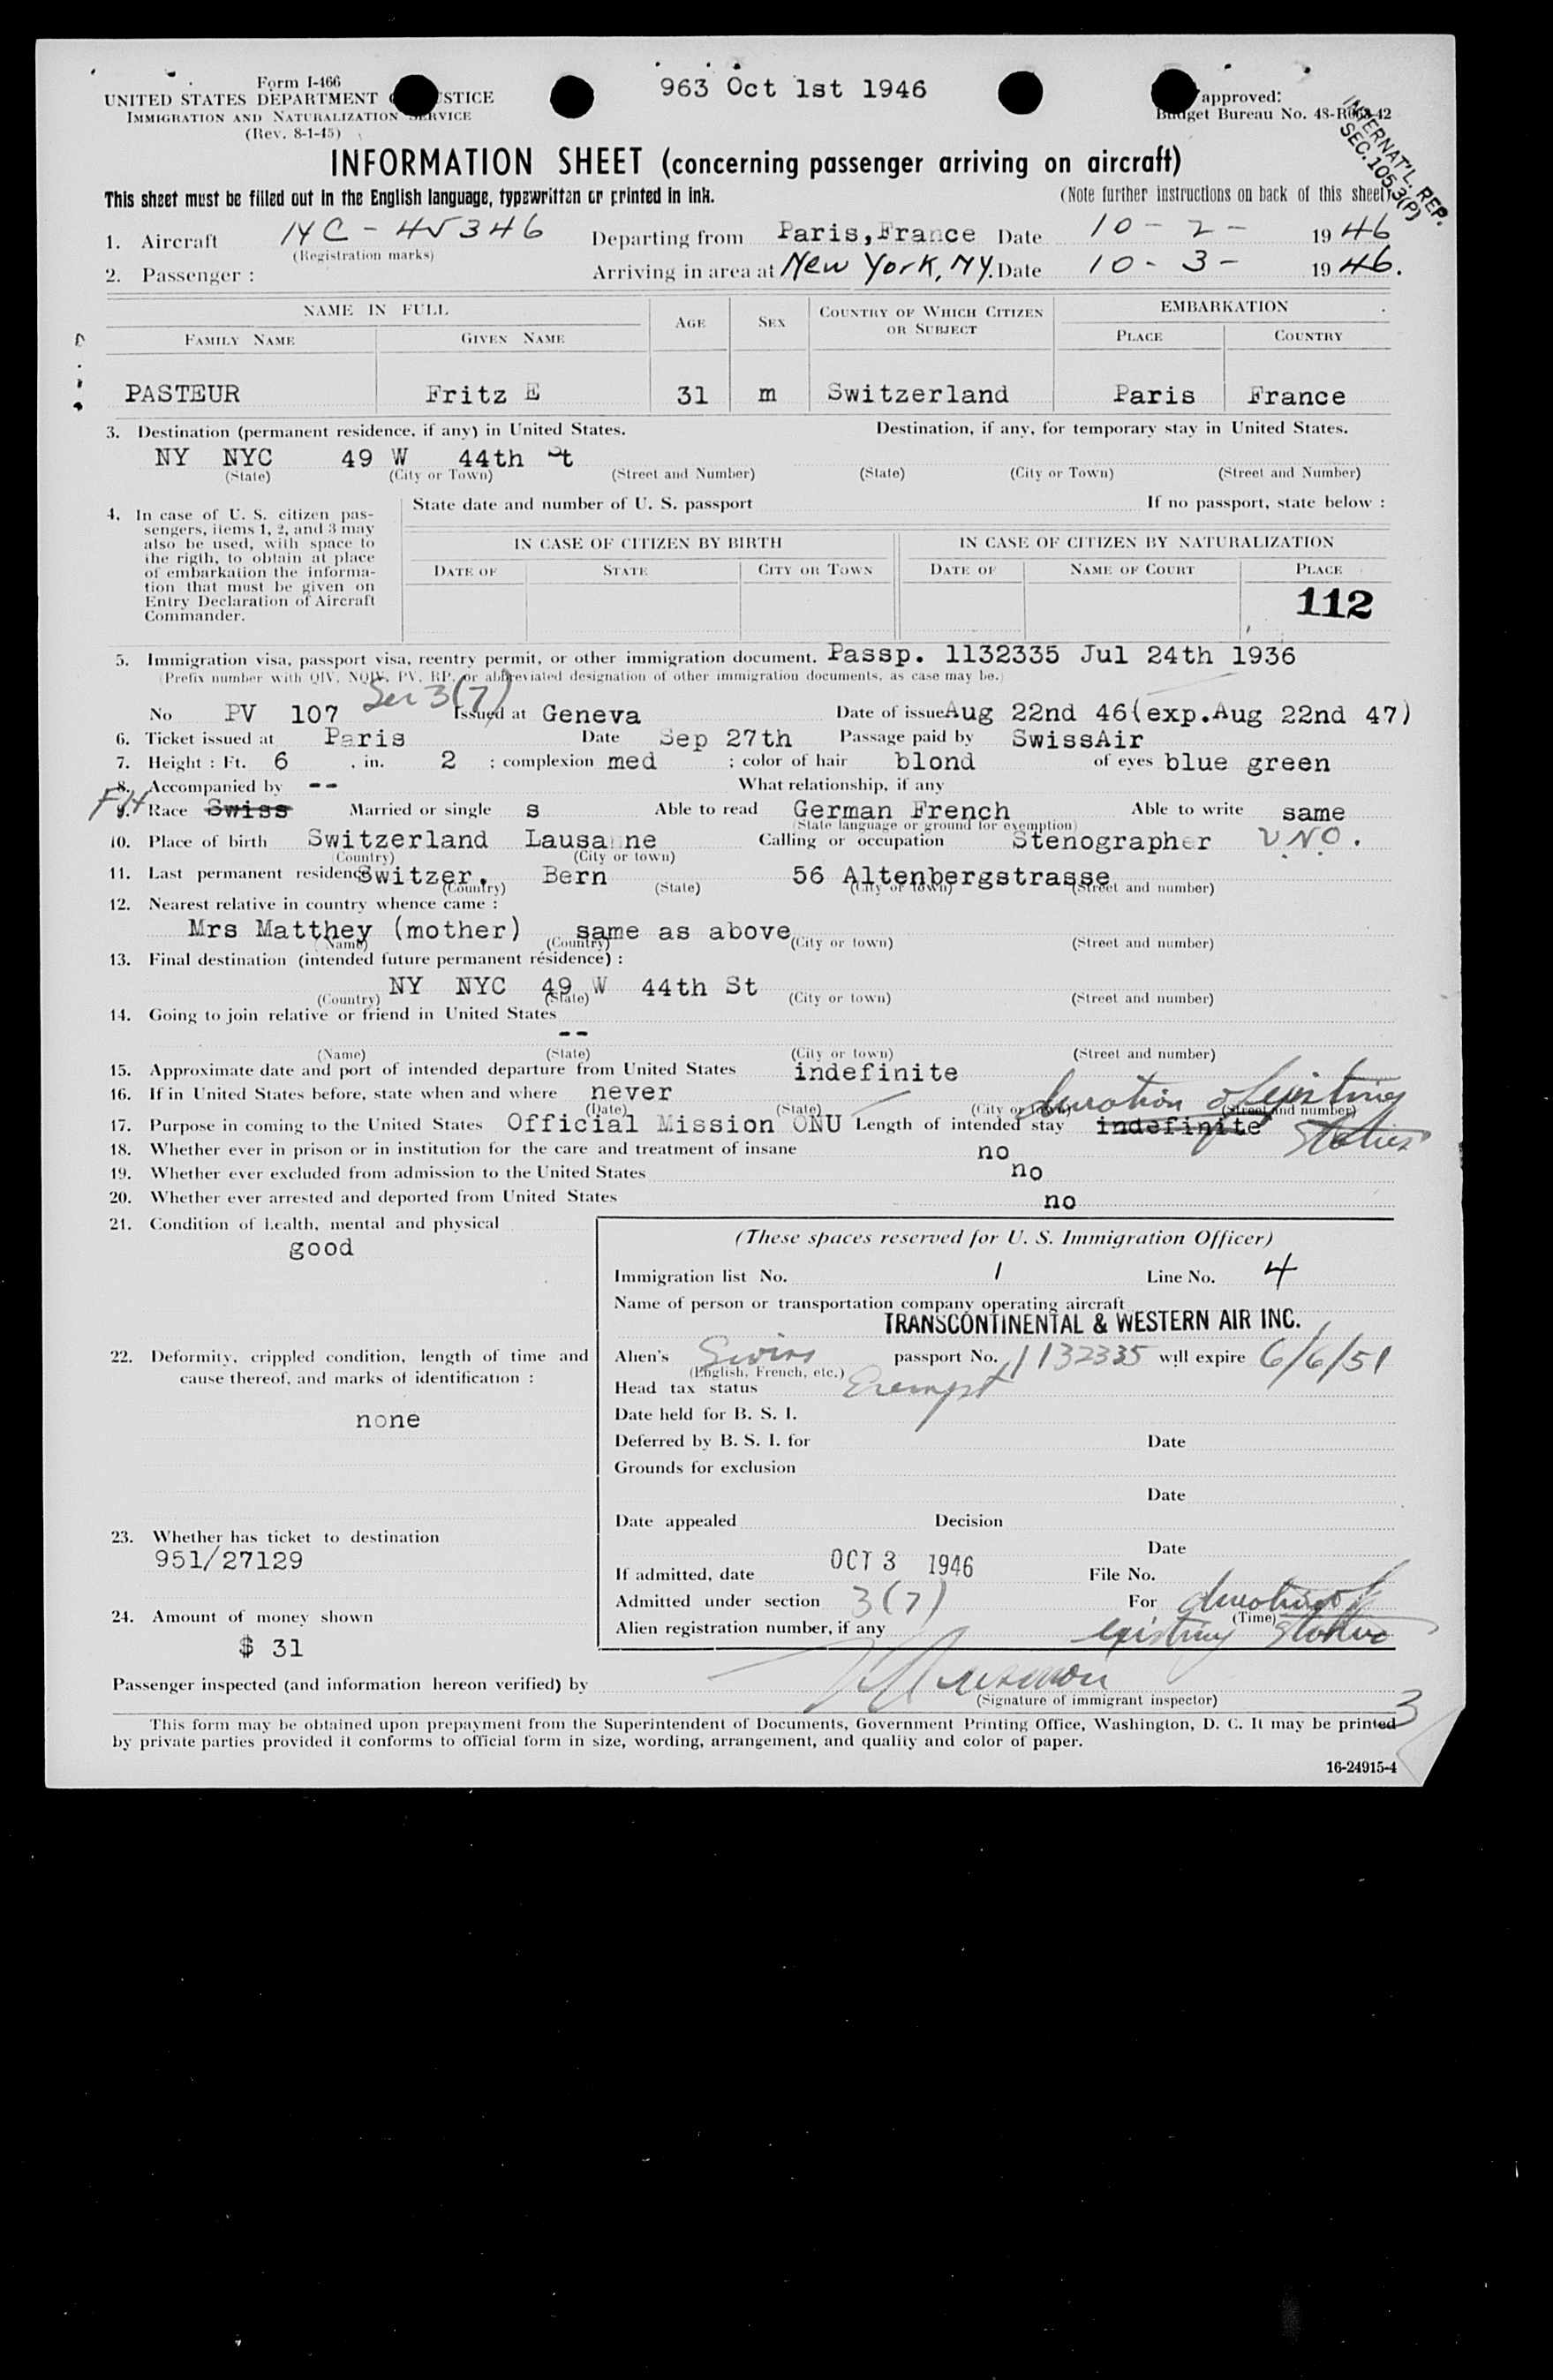 Form I-466
UNITED STATES DEPARTMENT STICE
IMMIGRATION AND NATURALIZATION SERVICE
(Rev. 8-1-45)
963 Oct 1st 1946
approved:
Budget Bureau No. 48-R063-42
INTERNAT'L. REP.
SEC. 105.3(P)
INFORMATION SHEET (concerning passenger arriving on aircraft)
This sheet must be filled out in the English language, typewritten or printed in ink. (Note further instructions on back of this sheet)
1. Aircraft NC - 45346 Departing from Paris, France Date 10 - 2 - 19 46
(Registration marks)
2. Passenger : Arriving in area at New York, NY. Date 10 - 3 - 19 46.
NAME IN FULL AGE SEX COUNTRY OF WHICH CITIZEN OR SUBJECT EMBARKATION
FAMILY NAME GIVEN NAME PLACE COUNTRY
PASTEUR Fritz E 31 m Switzerland Paris France
3. Destination (permanent residence, if any) in United States. Destination, if any, for temporary stay in United States.
NY NYC 49 W 44th St
(State) (City or Town) (Street and Number) (State) (City or Town) (Street and Number)
4. In case of U. S. citizen pas-
sengers, items 1, 2, and 3 may
also be used, with space to
the rigth, to obtain at place
of embarkation the informa-
tion that must be given on
Entry Declaration of Aircraft
Commander.
State date and number of U. S. passport If no passport, state below :
IN CASE OF CITIZEN BY BIRTH IN CASE OF CITIZEN BY NATURALIZATION
DATE OF STATE CITY OR TOWN DATE OF NAME OF COURT PLACE
112
5. Immigration visa, passport visa, reentry permit, or other immigration document. Passp. 1132335 Jul 24th 1936
(Prefix number with QIV, NQIV, PV, RP, or abbreviated designation of other immigration documents, as case may be.)
No PV 107 Sec 3(7) Issued at Geneva Date of issue Aug 22nd 46(exp.Aug 22nd 47)
6. Ticket issued at Paris Date Sep 27th Passage paid by SwissAir
7. Height : Ft. 6 , in. 2 ; complexion med ; color of hair blond of eyes blue green
8. Accompanied by -- What relationship, if any
9. Race Swiss Married or single s Able to read German French Able to write same
(State language or ground for exemption)
10. Place of birth Switzerland Lausanne Calling or occupation Stenographer UNO.
(Country) (City or town)
11. Last permanent residence Switzer. Bern 56 Altenbergstrasse
(Country) (State) (City or town) (Street and number)
12. Nearest relative in country whence came :
Mrs Matthey (mother) same as above
(Name) (Country) (City or town) (Street and number)
13. Final destination (intended future permanent résidence) :
NY NYC 49 W 44th St
(Country) (State) (City or town) (Street and number)
14. Going to join relative or friend in United States
--
(Name) (State) (City or town) (Street and number)
15. Approximate date and port of intended departure from United States indefinite
16. If in United States before, state when and where never
(Date) (State) (City or town) (Street and number)
duration of existing status
17. Purpose in coming to the United States Official Mission ONU Length of intended stay indefinite
18. Whether ever in prison or in institution for the care and treatment of insane no
19. Whether ever excluded from admission to the United States no
20. Whether ever arrested and deported from United States no
21. Condition of health, mental and physical
good
(These spaces reserved for U. S. Immigration Officer)
Immigration list No. 1 Line No. 4
Name of person or transportation company operating aircraft
TRANSCONTINENTAL & WESTERN AIR INC.
22. Deformity, crippled condition, length of time and
cause thereof, and marks of identification :
none
Alien's Swiss passport No. 1132335 will expire 6/6/51
(English, French, etc.)
Head tax status Exempt
Date held for B. S. I.
Deferred by B. S. I. for Date
Grounds for exclusion
Date
Date appealed Decision
23. Whether has ticket to destination
951/27129
Date
If admitted, date OCT 3 1946 File No.
Admitted under section 3(7) For duration of
(Time)
Alien registration number, if any existing status
24. Amount of money shown
$ 31
Passenger inspected (and information hereon verified) by
(Signature of immigrant inspector)
3
This form may be obtained upon prepayment from the Superintendent of Documents, Government Printing Office, Washington, D. C. It may be printed
by private parties provided it conforms to official form in size, wording, arrangement, and quality and color of paper.
16-24915-4